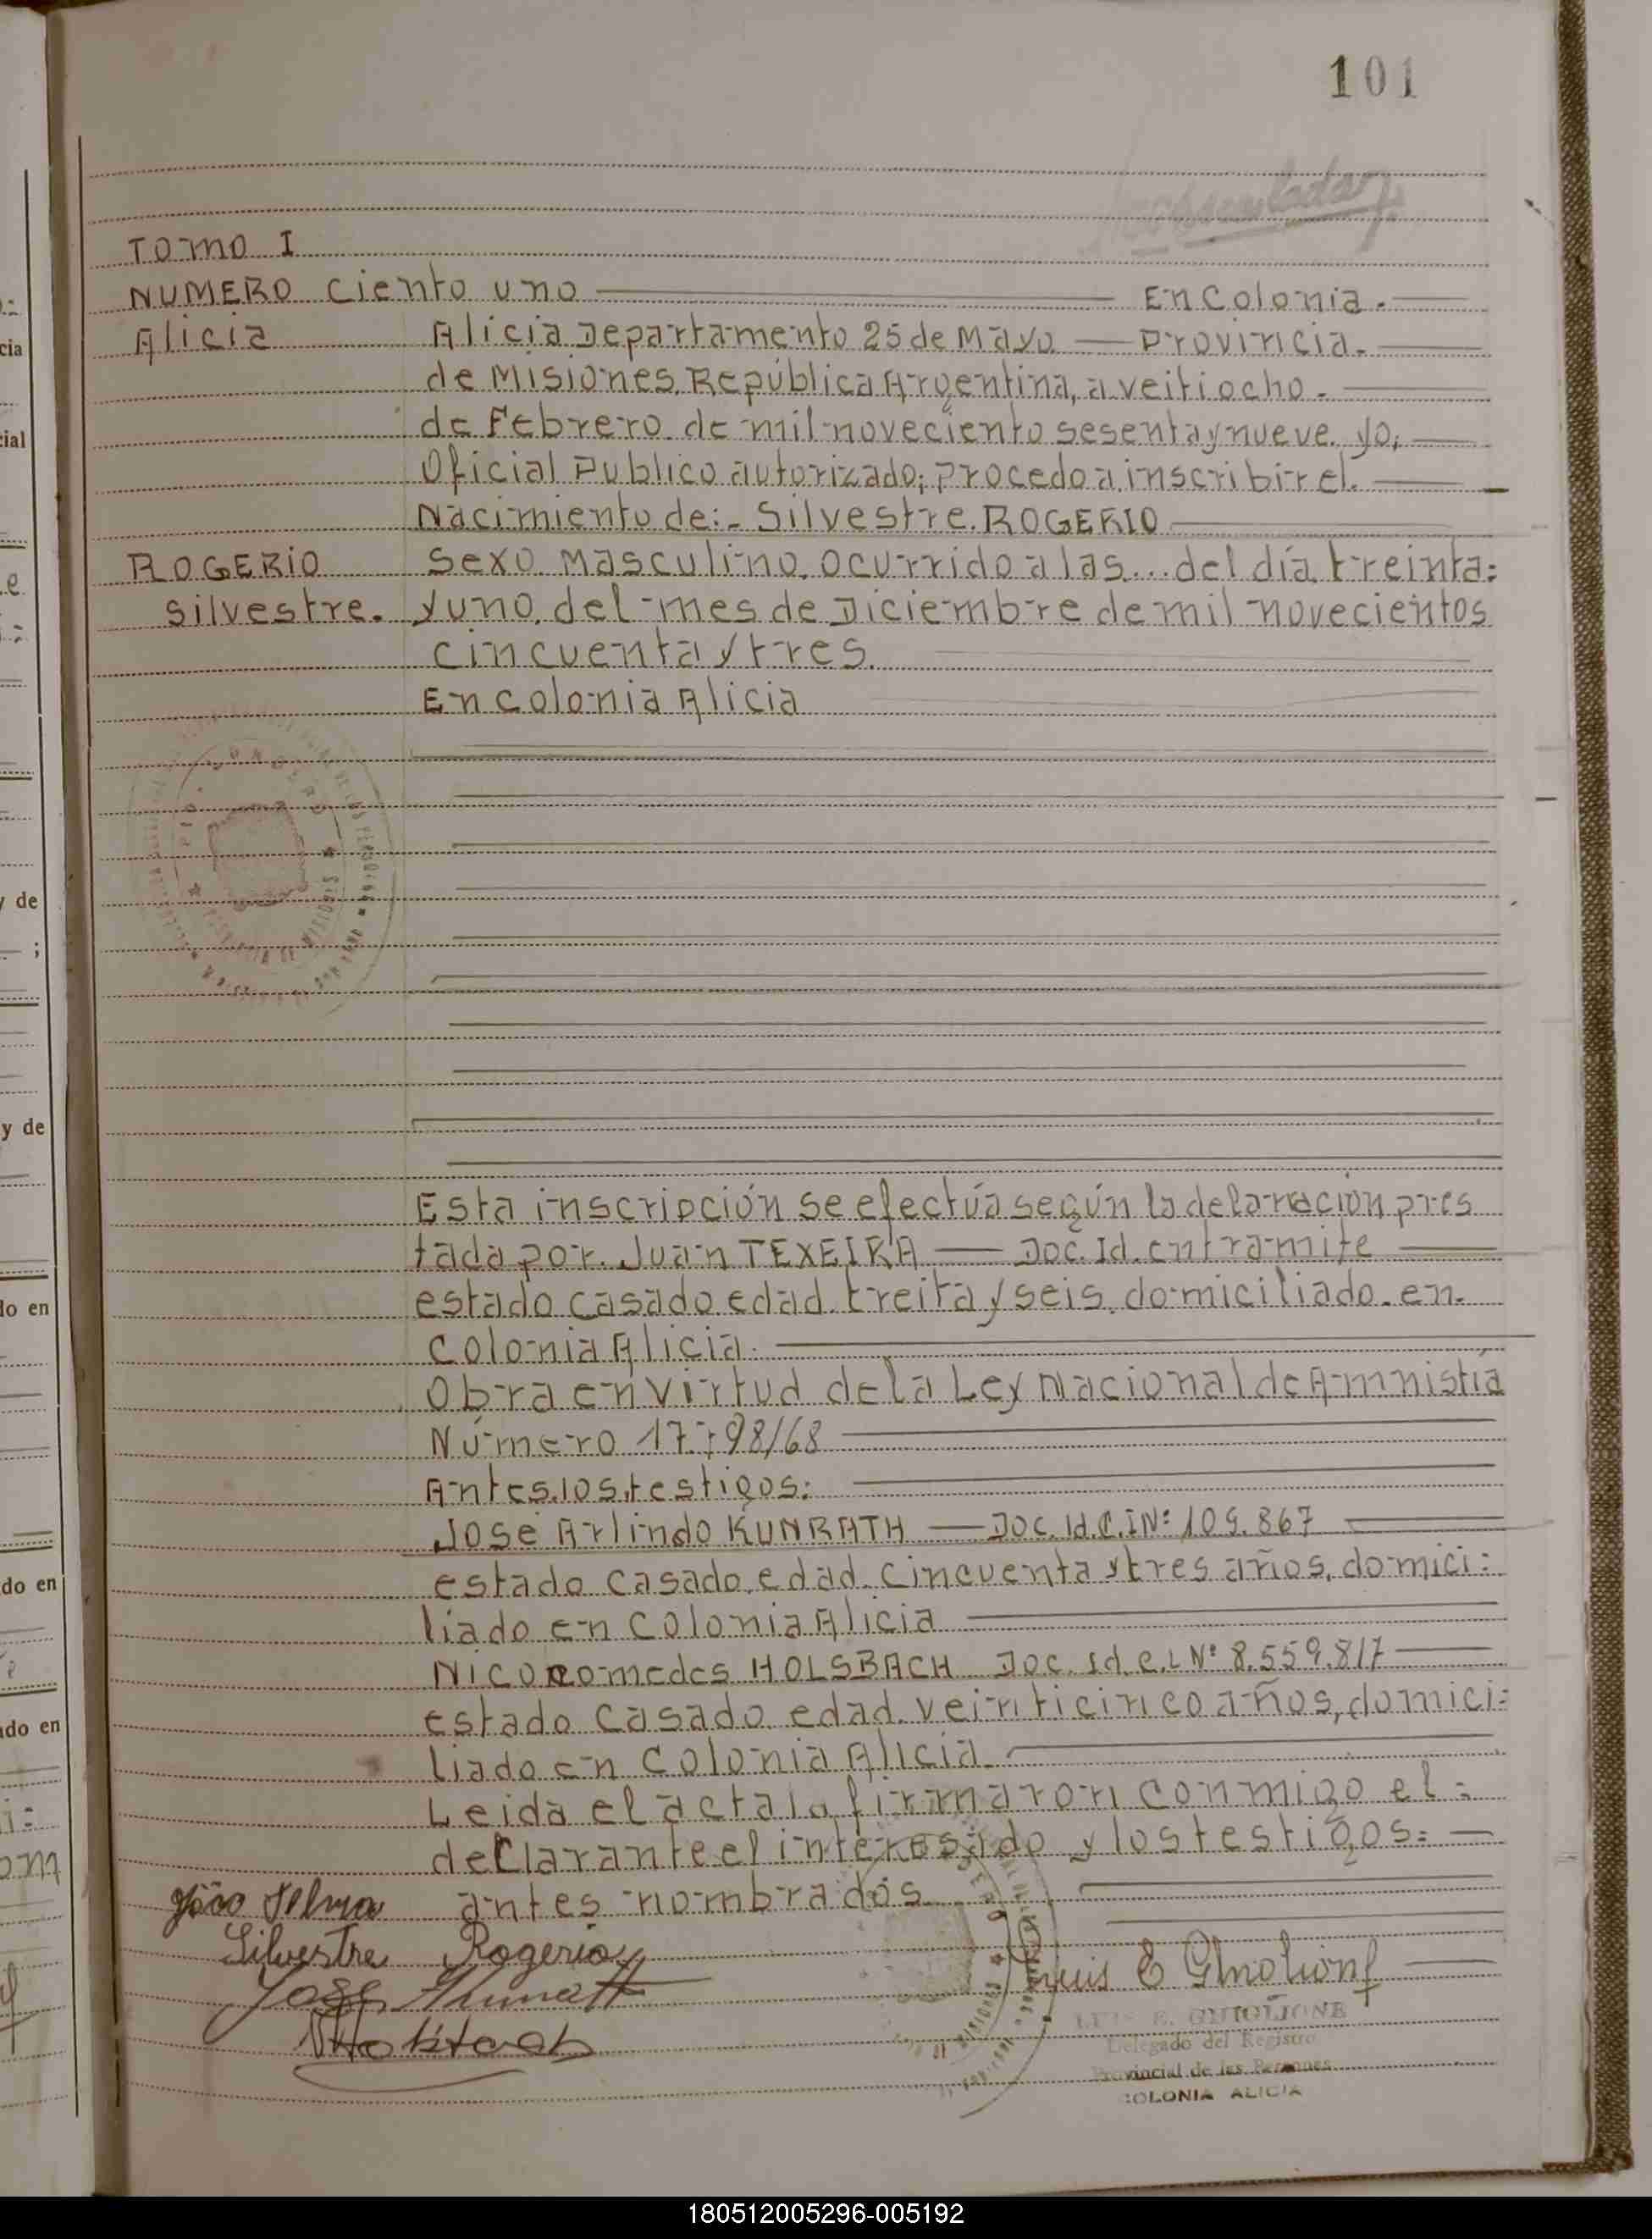 101
TOMO I
NUMERO ciento uno En Colonia.
Alicia Alicia Departamento 25 de Mayo Provincia.
de Misiones, República Argentina, a veitiocho.
de Febrero de mil noveciento sesenta y nueve. yo,
Oficial Publico autorizado; procedo a inscribir el.
Nacimiento de:- Silvestre. ROGERIO
ROGERIO sexo masculino, ocurrido a las... del día treinta=
silvestre. y uno, del mes de Diciembre de mil novecientos
cincuenta y tres.
En Colonia Alicia
Esta inscripción se efectúa según la delaración pres
tada por. Juan TEXEIRA Doc. Id. en tramite
estado casado edad. treita y seis, domiciliado. en.
Colonia Alicia.
Obra en virtud de la Ley Nacional de Amnistía
Número 98/68
Antes los testigos:
José Arlindo KUNRATH Doc. Id. C. I Nº: 109.867
estado casado, edad. cincuenta y tres años, domici=
liado en Colonia Alicia
HOLSBACH Doc. Id. Nº 8.559.817
estado casado edad. veinticinco años, domici=
liado en Colonia Alicia.
Leida el acta la firmaron conmigo el=
declarante el interesado y los testigos=
antes nombrados.
João
Silvestre Rogerio
LUIS E. GHIGLIONE
Delegado del Registro
Provincial de las Personas
COLONIA ALICIA
180512005296-005192